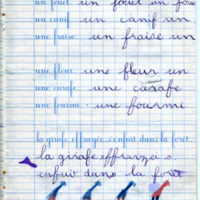 un jouet un jouet un jou
un canif un canif un
une fraise un fraise un
une fleur une fleur un
une carafe une carafe
une fourmi une fourmi
la girafe effrayée s'enfuit dans la forêt
la girafe effrayée s
enfuit dans la forêt